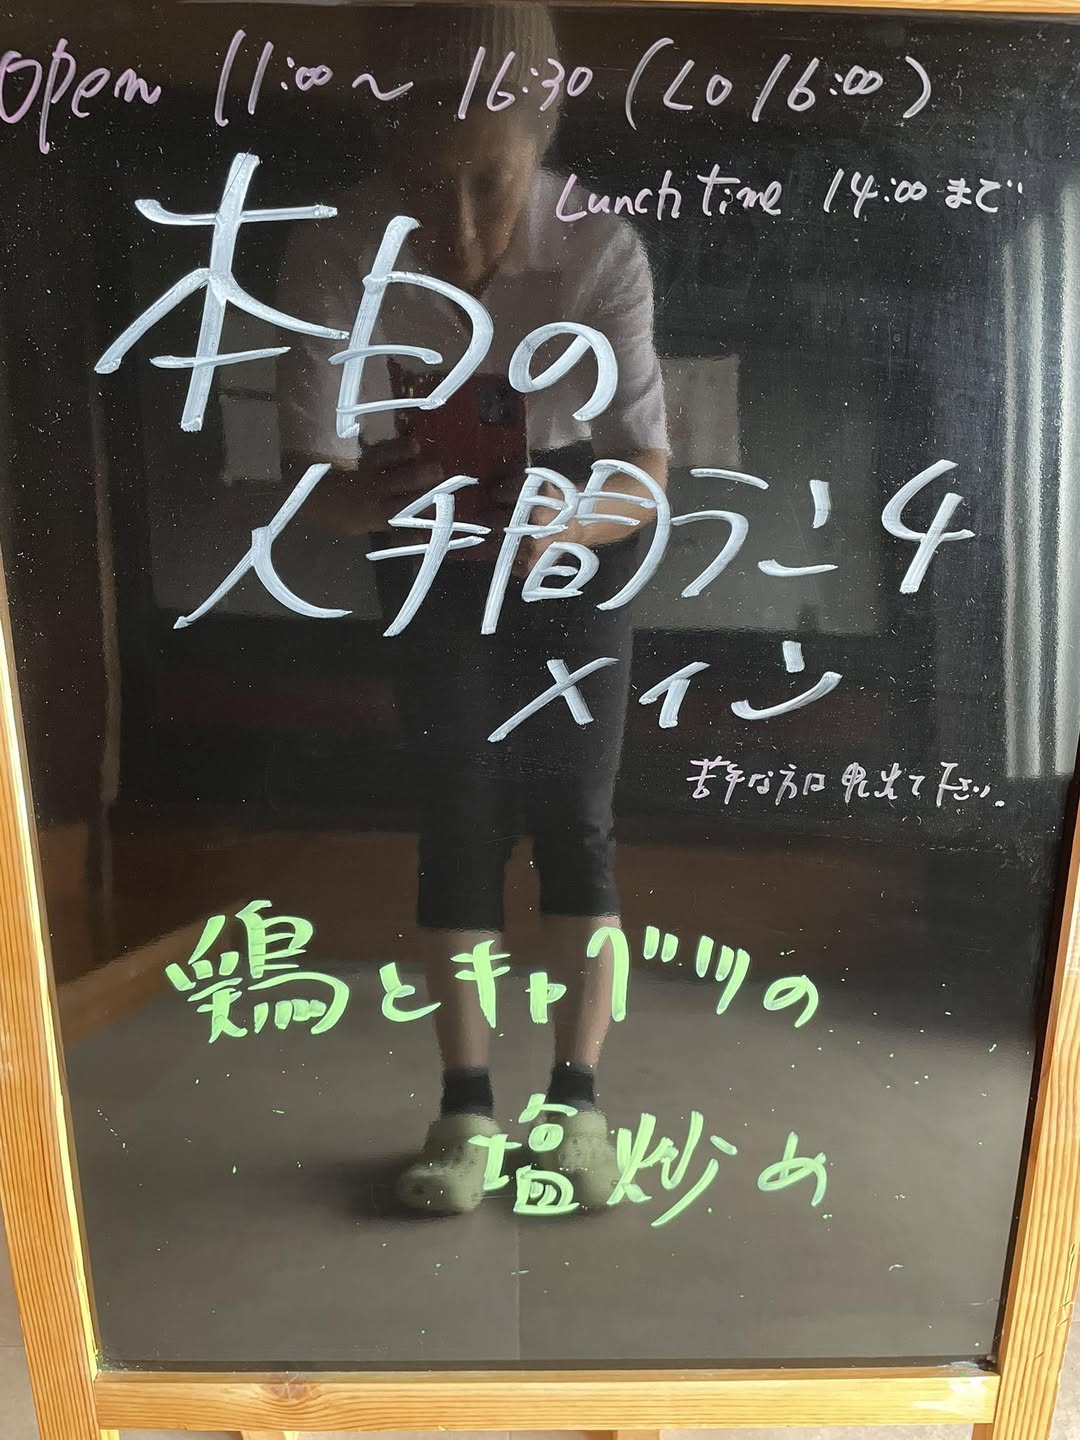 open 11:00〜16:30 (LO 16:00)
Lunch time 14:00まで
本日の
人手間ランチ
メイン
苦手な方は申出て下さい。
鶏とキャベツの
塩炒め